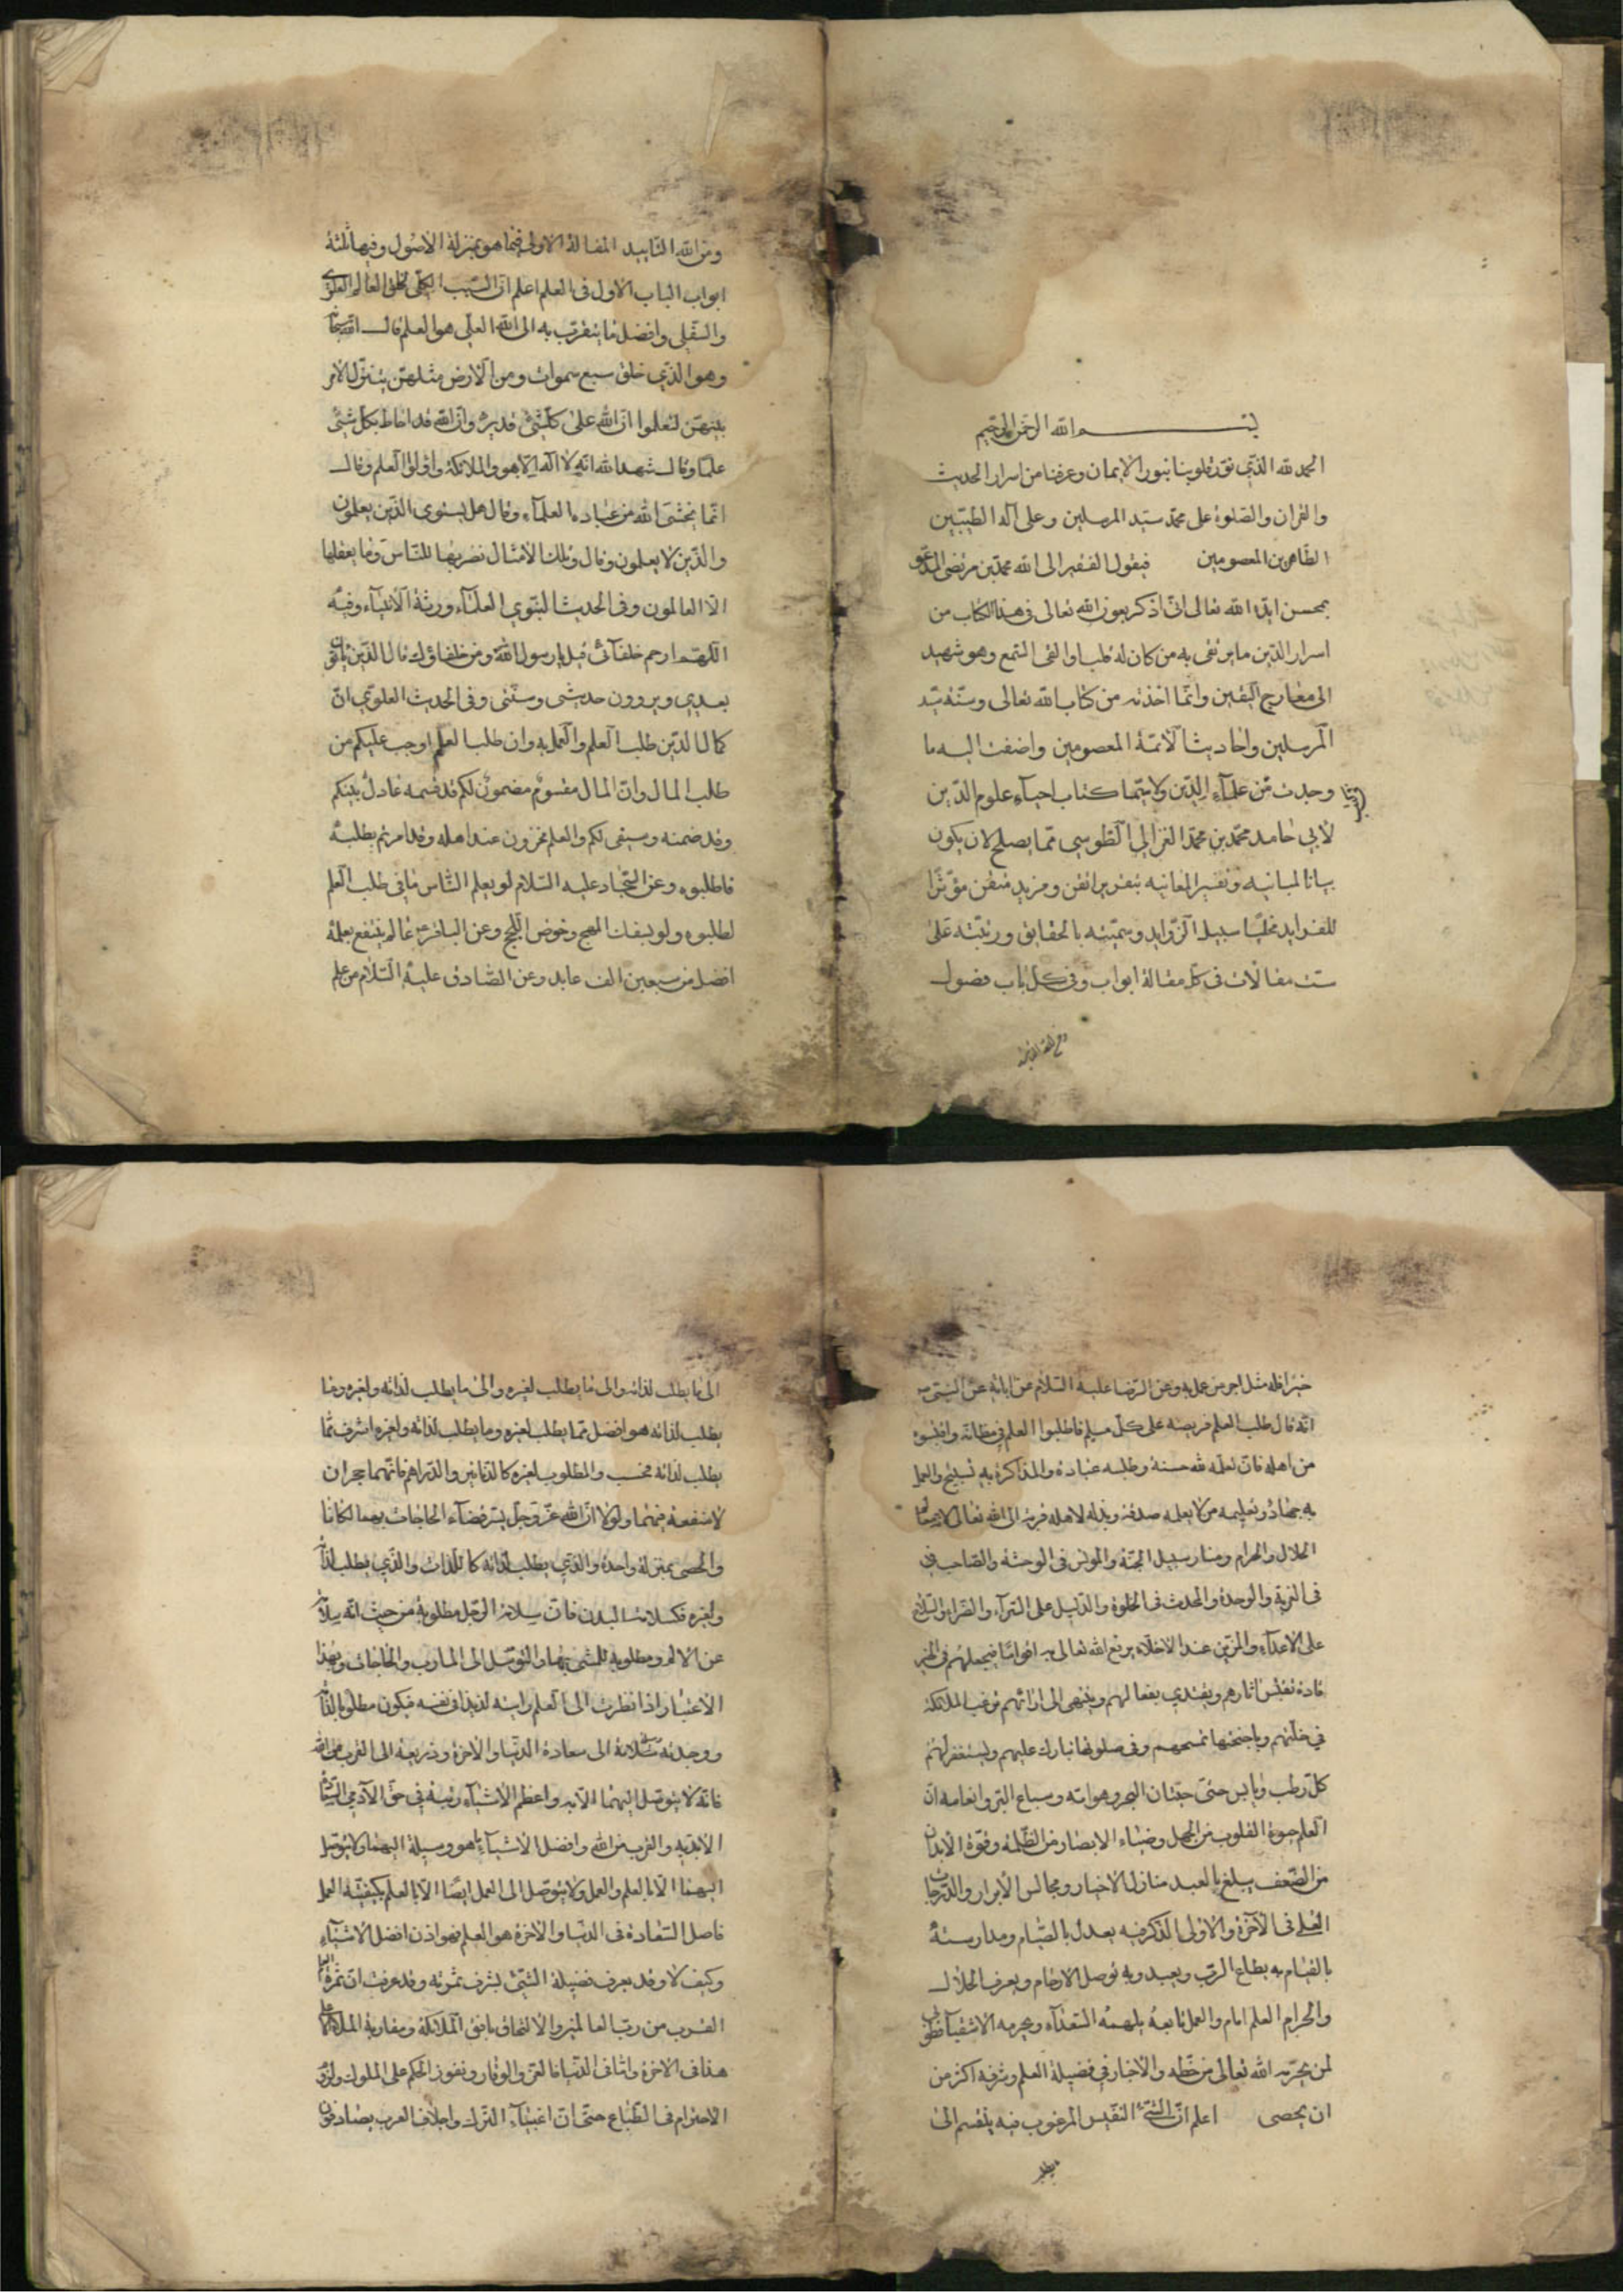 بسم الله الرحمن الرحيم
الحمد لله الذي نور قلوبنا بنور الايمان وعرفنا من اسرار الحديث
والقران والصلوة على محمد سيد المرسلين وعلى آله الطيبين
الطاهرين المعصومين فيقول الفقير الى الله محمد بن مرتضى المدعو
بمحسن ايده الله تعالى انى اذكر بعون الله تعالى في هذا الكتاب من
اسرار الدين ما يرتقى به من كان له قلب او القى السمع وهو شهيد
الى معارج اليقين وانما اخذته من كتاب الله تعالى وسنة سيد
المرسلين واحاديث الائمة المعصومين واضفت اليه ما
وجدت من علماء الدين ولا سيما كتاب احياء علوم الدين
لابي حامد محمد بن محمد الغزالي الطوسي مما يصلح لان يكون
بيانا لمبانيه وتفسيرا لمعانيه بتقرير اتقن ومزيد متقن مؤثرا
للفرايد مخليا سبيل الزوايد وسميته بالحقايق ورتبته على
ست مقالات في كل مقالة ابواب وفي كل باب فصول
ومن الله التاييد المقالة الاولى فيما هو بمنزلة الاصول وفيها ثلثة
ابواب الباب الاول في العلم اعلم ان السبب الكلي لخلق العالم العلوى
والسفلي وافضل ما يتقرب به الى الله العلي هو العلم قال الله سبحانه
وهو الذي خلق سبع سموات ومن الارض مثلهن يتنزل الامر
بينهن لتعلموا ان الله على كل شئ قدير وان الله قد احاط بكل شئ
علما وقال شهد الله انه لا اله الا هو والملائكة واولوا العلم وقال
انما يخشى الله من عباده العلماء وقال هل يستوى الذين يعلمون
والذين لا يعلمون وقال وتلك الامثال نضربها للناس وما يعقلها
الا العالمون وفى الحديث النبوي العلماء ورثة الانبياء وفيه
اللهم ارحم خلفائى قيل يا رسول الله ومن خلفاؤك قال الذين ياتون
بعدي ويروون حديثى وسنتى وفى الحديث العلوي ان
كمال الدين طلب العلم والعمل به وان طلب العلم اوجب عليكم من
طلب المال وان المال مقسوم مضمون لكم قد قسمه عادل بينكم
وقد ضمنه وسيفى لكم والعلم مخزون عند اهله وقد امرتم بطلبه
فاطلبوه وعن السجاد عليه السلام لو يعلم الناس ما فى طلب العلم
لطلبوه ولو بسفك المهج وخوض اللجج وعن الباقر ع عالم ينتفع بعلمه
افضل من سبعين الف عابد وعن الصادق عليه السلام من علم
خيرا فله مثل اجر من عمل به وعن الرضا عليه السلام عن ابائه عن النبى ص
انه قال طلب العلم فريضة على كل مسلم فاطلبوا العلم فى مظانه واقتبسوه
من اهله فان تعلمه لله حسنة وطلبه عبادة والمذاكرة به تسبيح والعمل
به جهاد وتعليمه من لا يعلمه صدقة وبذله لاهله قربة الى الله تعالى لانه معالم
الحلال والحرام ومنار سبيل الجنة والمونس فى الوحشة والصاحب فى
فى الغربة والوحدة والمحدث فى الخلوة والدليل على السراء والضراء والسلاح
على الاعداء والزين عند الاخلاء يرفع الله تعالى به اقواما فيجعلهم فى الخير
قادة تقتبس اثارهم ويقتدي بفعالهم وينتهى الى ارائهم ترغب الملائكة
في خلتهم وباجنحتها تمسحهم وفى صلوتها تبارك عليهم ويستغفر لهم
كل رطب ويابس حتى حيتان البحر وهوامه وسباع البر وانعامه ان
العلم حيوة القلوب من الجهل وضياء الابصار من الظلمة وقوة الابدان
من الضعف يبلغ بالعبد منازل الاخيار ومجالس الابرار والدرجات
العلى فى الآخرة والاولى الذكر فيه يعدل بالصيام ومدارسته
بالقيام به يطاع الرب ويعبد وبه توصل الارحام ويعرف الحلال
والحرام العلم امام والعمل تابعه يلهمه السعداء ويحرمه الاشقياء فطوبى
لمن لم يحرمه الله تعالى من حظه والاخبار في فضيلة العلم وشرفه اكثر من
ان يحصى اعلم ان الشئ النفيس المرغوب فيه ينقسم الى
الى ما يطلب لذاته والى ما يطلب لغيره والى ما يطلب لذاته ولغيره وما
يطلب لذاته هو افضل مما يطلب لغيره وما يطلب لذاته ولغيره اشرف مما
يطلب لذاته فحسب والمطلوب لغيره كالدنانير والدراهم فانهما حجران
لا منفعة فيهما ولولا ان الله عز وجل يسر قضاء الحاجات بهما لكانا
والحصى بمنزلة واحدة والذي يطلب لذاته كاللذات والذي يطلب لذاته
ولغيره فكسلامة البدن فان سلامة الرجل مطلوبة من حيث انه سلامة
عن الالم ومطلوبة للمشى بها والتوصل الى المارب والحاجات وبهذا
الاعتبار اذا نظرت الى العلم رايته لذيذا فى نفسه فيكون مطلوبا لذاته
ووجدته وسيلة الى سعادة الدنيا والآخرة وذريعة الى القرب من الله
فانه لا يتوصل اليهما الا به واعظم الاشياء رتبة في حق الآدمي السعادة
الابدية والقرب من الله وافضل الاشياء ما هو وسيلة اليهما ولا يتوصل
اليهما الا بالعلم والعمل ولا يتوصل الى العمل ايضا الا بالعلم بكيفية العمل
فاصل السعادة فى الدنيا والآخرة هو العلم فهو اذن افضل الاشياء
وكيف لا وقد يعرف فضيلة الشئ بشرف ثمرته وقد عرفت ان ثمرة العلم
القرب من رب العالمين والالتحاق بافق الملائكة ومقاربة الملاء الاعلى
هذا فى الاخرة واما فى الدنيا فالعز والوقار ونفوذ الحكم على الملوك ولزوم
الاحترام فى الطباع حتى ان اغبياء الترك واجلاف العرب يصادفون